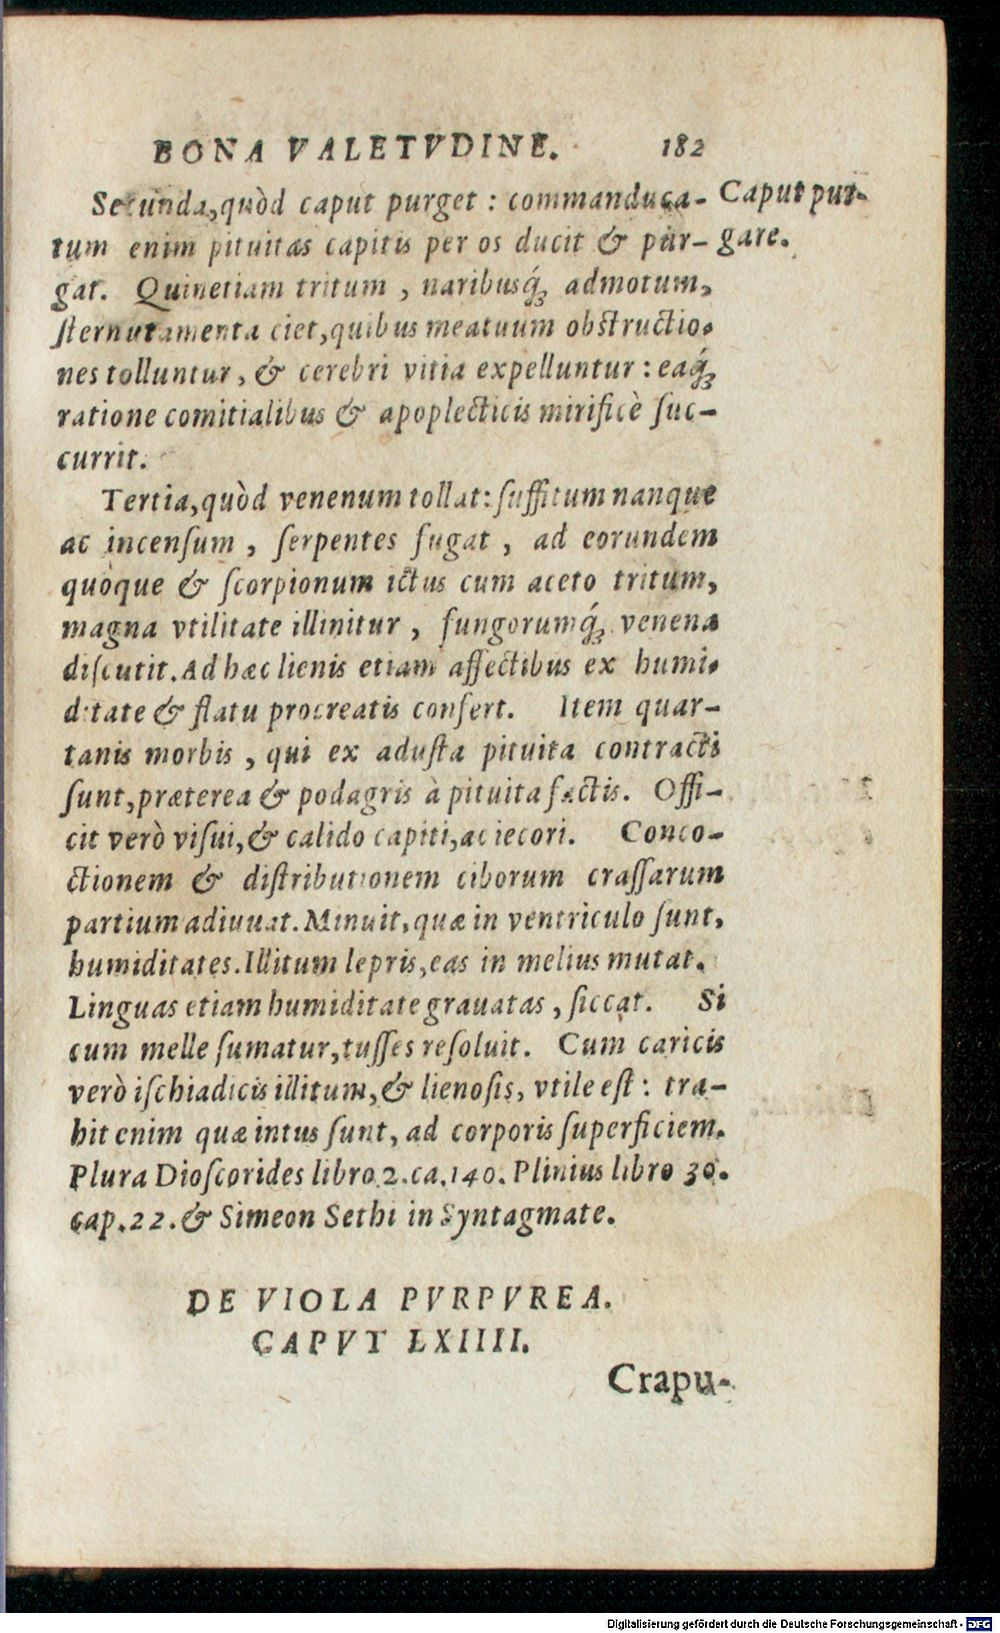 BONA VALETVDINE. 182
Secunda, quòd caput purget: commanduca-
tum enim pituitas capitis per os ducit & pur-
gat. Quinetiam tritum, naribusq́ꝫ admotum,
ſternutamenta ciet, quibus meatuum obſtructio-
nes tolluntur, & cerebri vitia expelluntur: eaq́ꝫ
ratione comitialibus & apoplecticis mirificè ſuc-
currit.
Caput pur-
gare.
Tertia, quòd venenum tollat: ſuffitum nanque
ac incenſum, ſerpentes fugat, ad eorundem
quoque & ſcorpionum ictus cum aceto tritum,
magna vtilitate illinitur, fungorumq́ꝫ venena
diſcutit. Ad hæc lienis etiam affectibus ex humi-
ditate & flatu procreatis confert. Item quar-
tanis morbis, qui ex aduſta pituita contracti
ſunt, præterea & podagris à pituita factis. Offi-
cit verò viſui, & calido capiti, ac iecori. Conco-
ctionem & diſtributionem ciborum craſſarum
partium adiuuat. Minuit, quæ in ventriculo ſunt,
humiditates. Illitum lepris, eas in melius mutat.
Linguas etiam humiditate grauatas, ſiccat. Si
cum melle ſumatur, tuſſes reſoluit. Cum caricis
verò iſchiadicis illitum, & lienoſis, vtile eſt: tra-
hit enim quæ intus ſunt, ad corporis ſuperficiem.
Plura Dioſcorides libro 2. ca. 140. Plinius libro 30.
cap. 22. & Simeon Sethi in Syntagmate.
DE VIOLA PVRPVREA.
CAPVT LXIIII.
Crapu-
Digitalisierung gefördert durch die Deutsche Forschungsgemeinschaft - DFG